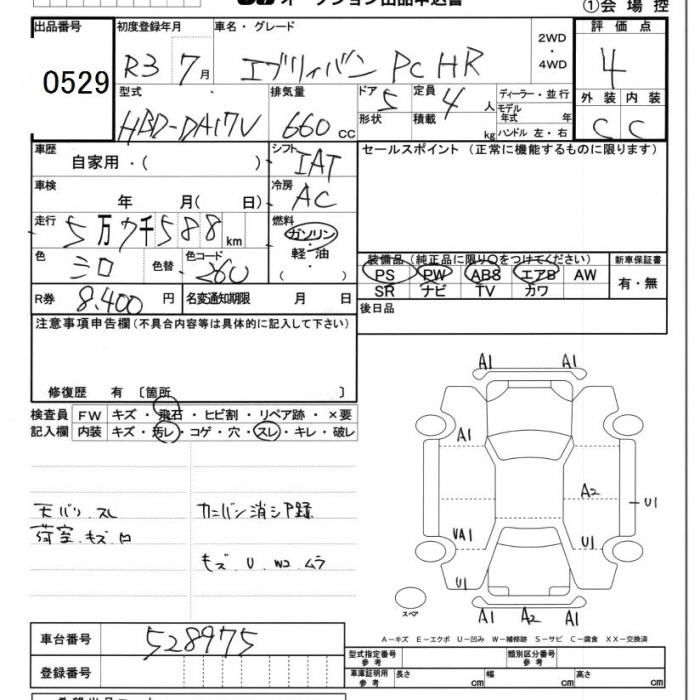 オークション出品申込書
①会場控
出品番号 初度登録年月 車名・グレード 評価点
0529 R3 7月 エブリィバン PC HR 2WD・4WD 4
型式 排気量 ドア 5 定員 4人 ディーラー・並行 外装 内装
HBD-DA17V 660cc 形状 積載 kg モデル年式 年 C C
ハンドル 左・右
車歴 自家用・( ) シフト IAT セールスポイント(正常に機能するものに限ります)
車検 年 月( 日) 冷房 AC
走行 5万7千588km 燃料 ガソリン・軽油・( )
色 シロ 色替 色コード 26U 装備品(純正品に限り○をつけてください) 新車保証書
PS PW ABS エアB AW 有・無
SR ナビ TV カワ
R券 8,400円 名変通知期限 月 日 後日品
注意事項申告欄(不具合内容等は具体的に記入して下さい)
修復歴 有〔箇所 〕
検査員 FW キズ・飛石・ヒビ割・リペア跡・×要
記入欄 内装 キズ・汚レ・コゲ・穴・スレ・キレ・破レ
天バリ.スレ カンバン消シ戸録
荷室.キズ.ロ
キズ.U.W2.ムラ
A1 A1
A1
A2
U1
VA1 U1
U1
スペア
A1 A2 A1
A-キズ E-エクボ U-凹み W-補修跡 S-サビ C-腐食 XX-交換済
車台番号 528975
型式指定番号 参考 類別区分番号 参考
登録番号 車庫証明用 参考 長さ cm 幅 cm 高さ cm